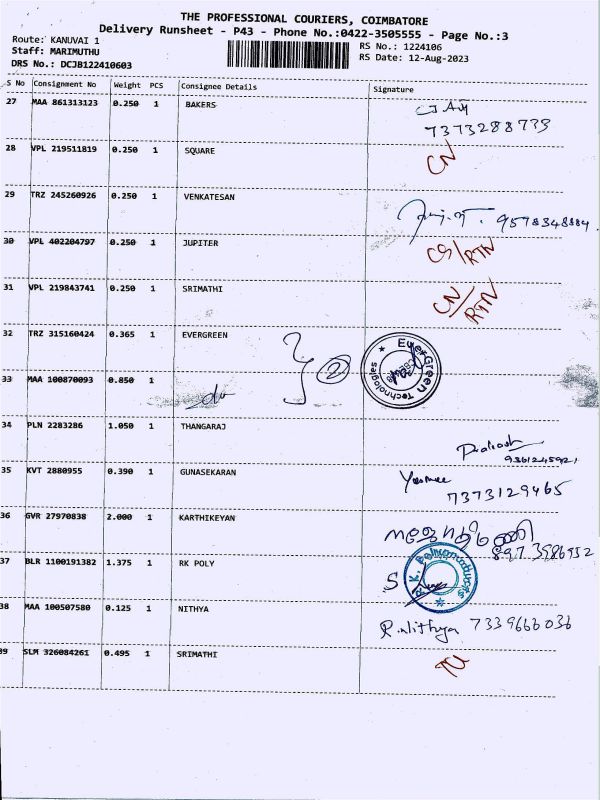 THE PROFESSIONAL COURIERS, COIMBATORE
Delivery Runsheet - P43 - Phone No.:0422-3505555 - Page No.:3
Route: KANUVAI 1
RS No.: 1224106
Staff: MARIMUTHU
RS Date: 12-Aug-2023
DRS No.: DCJB122410603
S No Consignment No Weight PCS Consignee Details Signature
27 MAA 861313123 0.250 1 BAKERS
7373288739
28 VPL 219511819 0.250 1 SQUARE CN
29 TRZ 245260926 0.250 1 VENKATESAN
9578348884
30 VPL 402204797 0.250 1 JUPITER /RTN
31 VPL 219843741 0.250 1 SRIMATHI CN/RTN
32 TRZ 315160424 0.365 1 EVERGREEN
2 EverGreen Technologies
33 MAA 100870093 0.850 1 do
34 PLN 2283286 1.050 1 THANGARAJ
Prakash
9361245921
35 KVT 2880955 0.390 1 GUNASEKARAN
7373129465
36 GVR 27970838 2.000 1 KARTHIKEYAN
8973986932
37 BLR 1100191382 1.375 1 RK POLY
38 MAA 100507580 0.125 1 NITHYA R.Nithya 7339666036
39 SLM 326084261 0.495 1 SRIMATHI